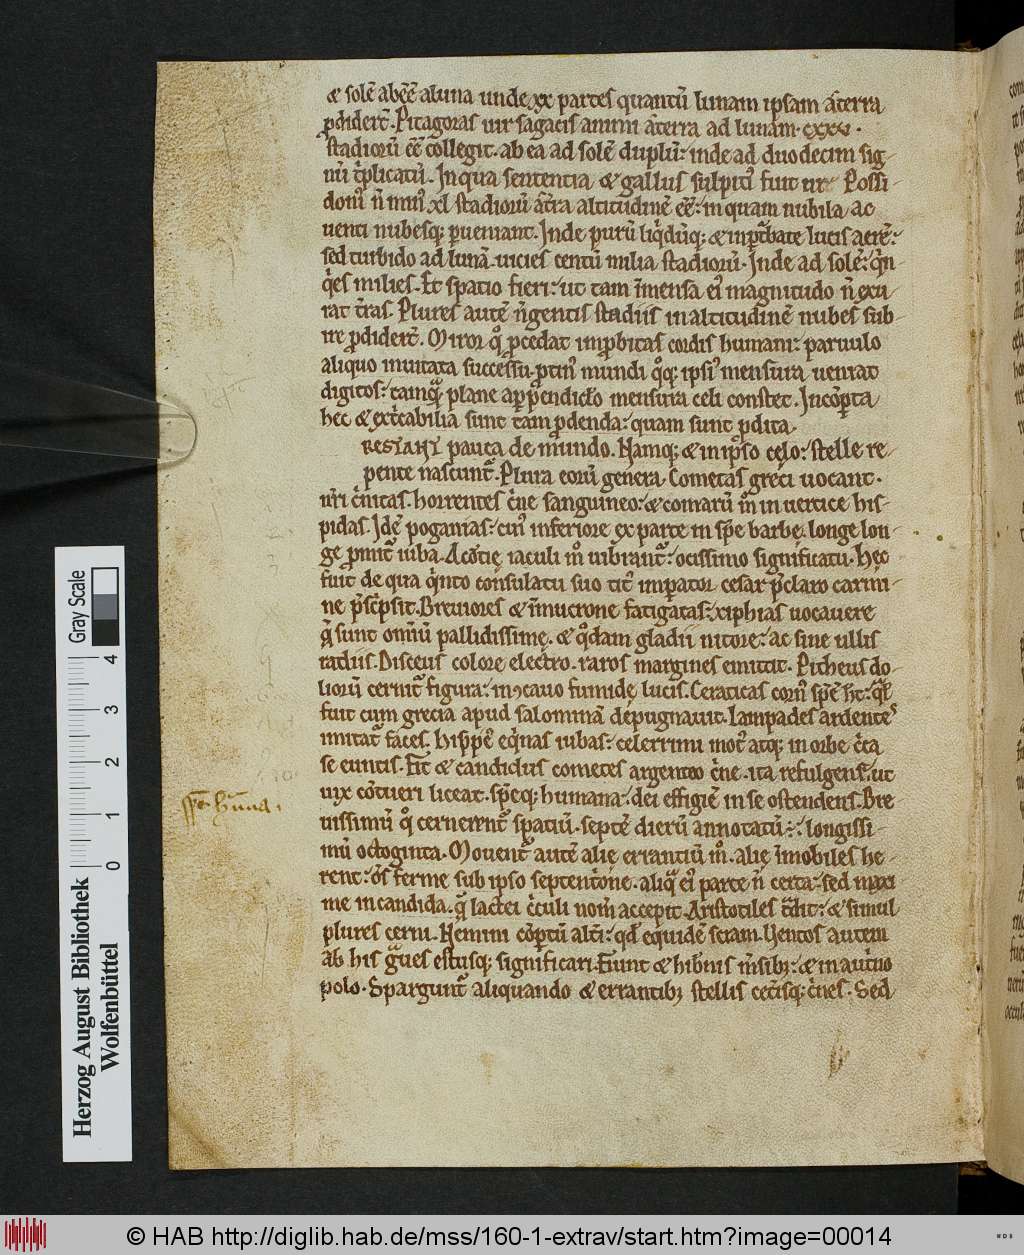 & solē abēē aluna unde xx partes quantū lunam ipsam āterra
p̄didert̄. Pitagoras uir sagacis animi āterra ad lunam. cxxxi.
stadiorū ēē collegit. ab ea ad solē duplū: inde ad duodecim sig
nū t̄plicatū. In qua sententia & gallus sulpitiꝰ fuit nr̄. Possi
doniꝰ n̄ minꝰ xl stadiorū āt̄ra altitudinē ēē: in quam nubila ac
uenti nubesq; ꝑueniant. Inde purū liq̄dūq; & inꝑt̄bate lucis aerē:
sed turbido ad lunā. uicies centū milia stadiorū. Inde ad solē: q̄n
q̄es milies. Et spatio fieri: ut tam īmensa eiꝰ magnitudo n̄ exu
rat t̄ras. Plures autē n̄gentis stadiis in altitudinē nubes sub
ire p̄didert̄. Miror qͦ p̄cedat improbitas cordis humani: paruulo
aliquo inuitata successu. ptinꝰ mundi qͦq; ipsiꝰ mensura ueniat
digitos: tamq̄ plane appendiclo mensura celi constet. Incōperta
hec & ext̄cabilia sunt tam p̄denda: quam sunt p̄dita.
RESTANT pauca de mundo. Namq; & in ipso celo: stelle re
pente nascunt̄. Plura eorū genera. Cometas greci uocant.
nr̄i c̄nitas. horrentes c̄ne sanguineo: & comarū m̊ in uertice his
pidas. Idē pogonias: cuiꝰ inferiore ex parte in spē barbę. longe lon
ge pmit̄ iuba. Acōtię iaculi m̊ uibrant̄: ocissimo significatu. Hęc
fuit de qua q̄nto consulatu suo titꝰ imꝑator cesar p̄claro carmi
ne p̄sc̄psit. Breuiores & ī mucrone fatigatas: xiphias uocauere
q̄ sunt omīū pallidissimę. & qͦdam gladii nitore: ac sine ullis
radiis. Disceus colore electro. raros margines emittit. Pitheus do
liorū cernit̄ figura: in ɔcauo fumidę lucis. Ceratias cornꝰ spēt h̄t: q̄l
fuit cum grecia apud salominā depugnauit. Lampades ardentes
imitat̄ faces. Hippeꝰ eq̄nas iubas: celerrimi motꝰ atq; in orbe c̄ca
se euntis. Fit̄ & candidus cometes argenteo c̄ne. ita refulgens: ut
uix cōtueri liceat. spēq; humana: dei effigiē in se ostendens. Bre
uissimū qͦ cernerent̄ spatiū. septē dierū annotatū: longissi
mū octoginta. Mouent̄ autē alię errantiū m̊. alię īmobiles he
rent: oēs ferme sub ipso septent̄one. aliq̄ eiꝰ parte n̄ certa: sed maxi
me in candida. q̄ lactei c̄culi nom̄ accepit. Aristotiles t̄dit: & simul
plures cerni. Nemini cōp̄tū alt̄i: qd̄ equidē sciam. Uentos autem
ab his ḡues estusq; significari. Fiunt & hib̄nis m̄sib;: & in aust̄no
polo. Spargunt̄ aliquando & errantib; stellis cet̄isq; c̄nes. Sed
Herzog August Bibliothek
Wolfenbüttel
Gray Scale
0 1 2 3 4
© HAB http://diglib.hab.de/mss/160-1-extrav/start.htm?image=00014